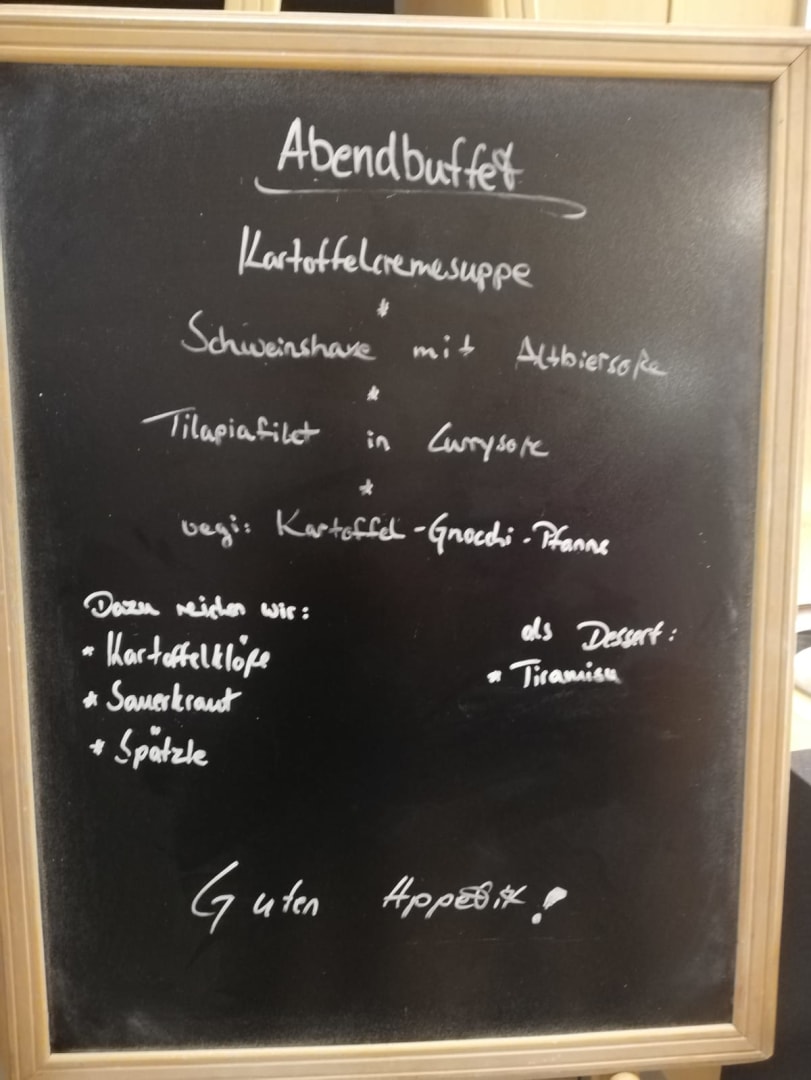 Abendbuffet
Kartoffelcremesuppe
*
Schweinshaxe mit Altbiersoße
*
Tilapiafilet in Currysoße
*
vegi: Kartoffel-Gnocchi-Pfanne
Dazu reichen wir:
* Kartoffelklöße
* Sauerkraut
* Spätzle
als Dessert:
* Tiramisu
Guten Appetit!